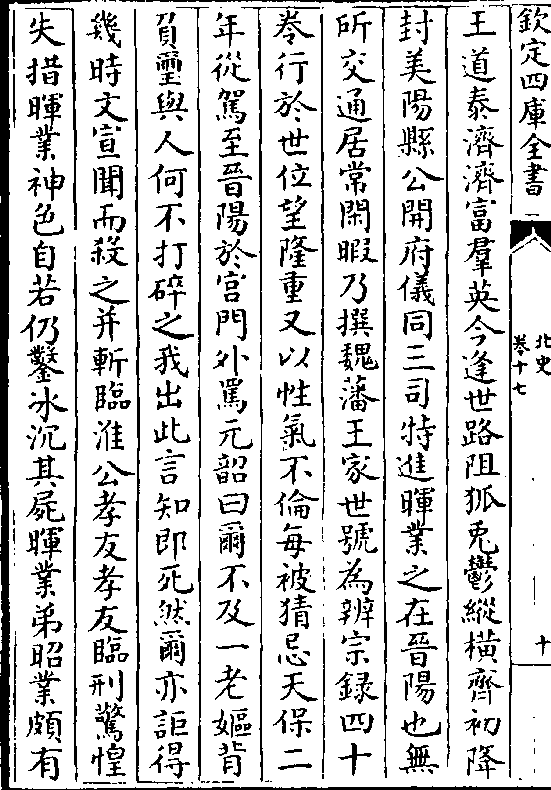 欽定四庫全書
北史
卷十七
十
王道泰濟濟富羣英今逢世路阻狐兎鬱縱橫齊初降
封美陽縣公開府儀同三司特進暉業之在晉陽也無
所交通居常閑暇乃撰魏藩王家世號為辨宗録四十
卷行於世位望隆重又以性氣不倫每被猜忌天保二
年從駕至晉陽於宫門外罵元韶曰爾不及一老嫗背
負璽與人何不打碎之我出此言知即死然爾亦詎得
幾時文宣聞而殺之并斬臨淮公孝友孝友臨刑驚惶
失措暉業神色自若仍鑿冰沉其屍暉業弟昭業頗有